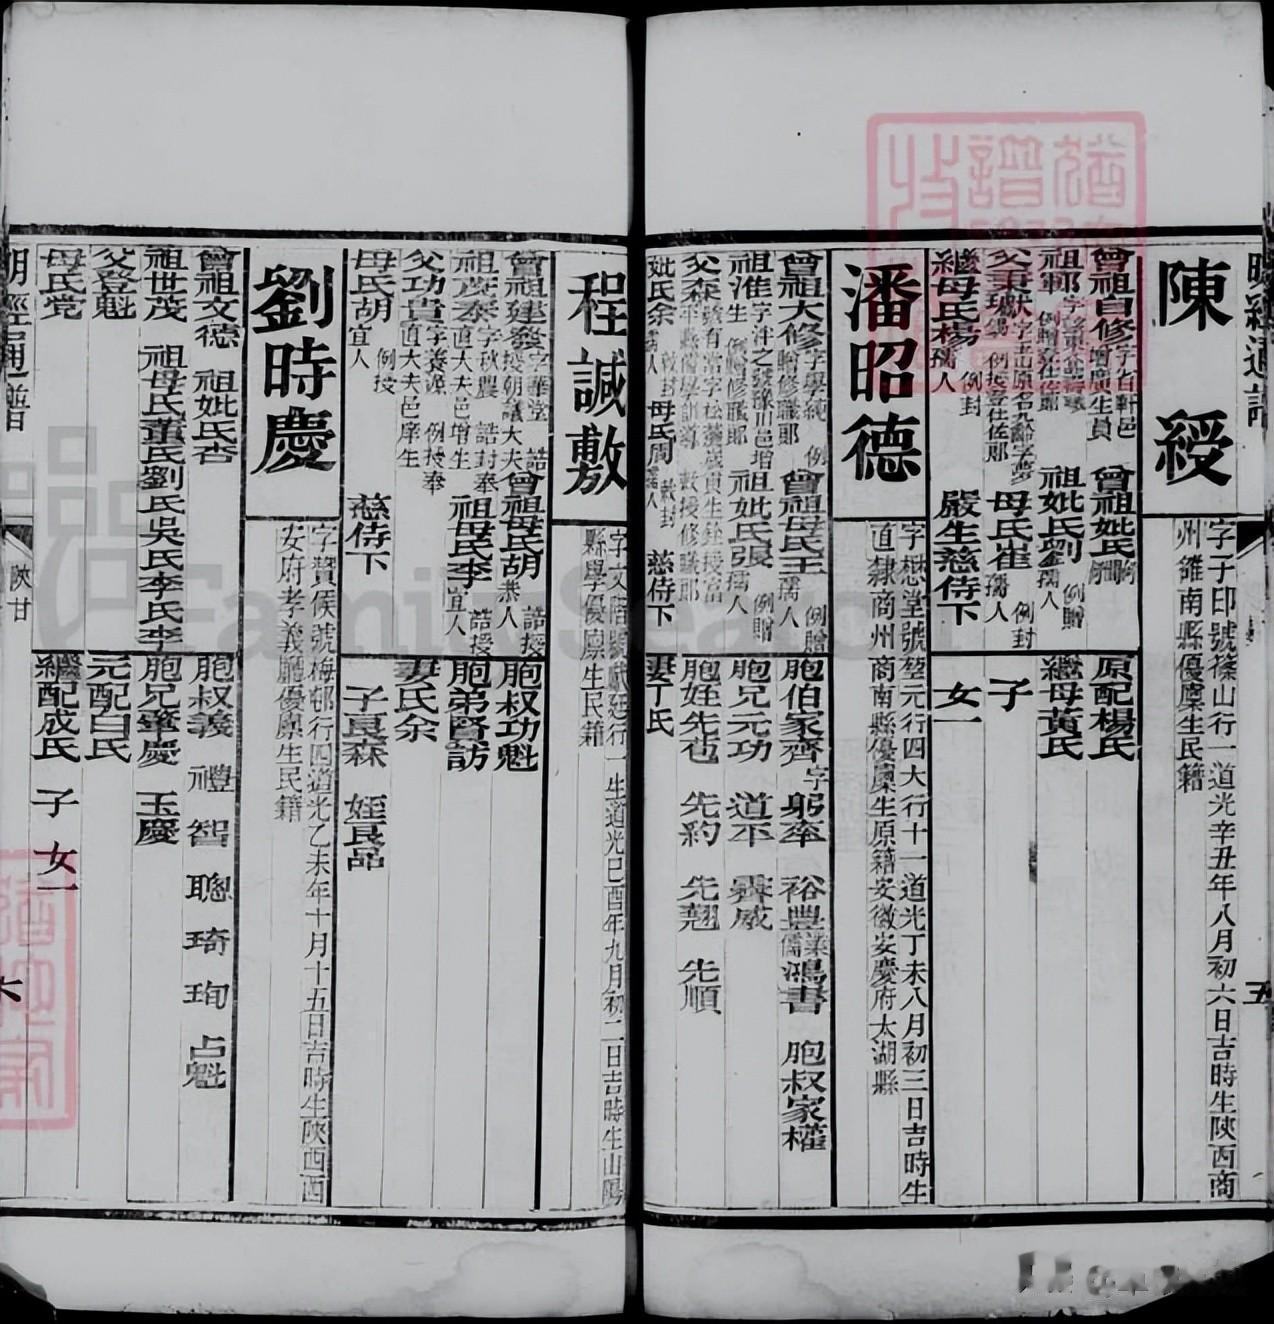 明經通譜
五
陳綬
字子印號篠山行一道光辛丑年八月初六日吉時生陝西商
州雒南縣優廩生民籍
曾祖自修字省軒邑增廣生員 曾祖妣氏
祖鄆 例贈登仕郎 祖妣氏劉例贈孺人
父秉猷字玉山原名齡字夢錫例授登仕郎 母氏崔例封孺人
繼母氏楊例封孺人 嚴生慈侍下
原配楊氏
繼母黃氏
子
女一
潘昭德
字懋堂號堃元行四大行十一道光丁未八月初三日吉時生
直隸商州商南縣優廩生原籍安徽安慶府太湖縣
曾祖大修字學純例贈修職郎 曾祖母氏王例贈孺人
祖淮字泮之號豫川邑增生例贈修職郎 祖妣氏張例贈孺人
父森 號有當字松 歲貢生銓授富平縣儒學訓導敕授修職郎
妣氏余敕封孺人 母氏周敕封孺人 慈侍下
胞伯家齊字躬奉 裕豐業儒 鴻書 胞叔家權
胞兄元功 道平 霽威
胞姪先也 先約 先翹 先順
妻丁氏
程諴敷
字文階號 廷行一生道光己酉年九月初二日吉時生山陽
縣學優廩生民籍
曾祖建發字華堂誥授朝議大夫 曾祖母氏胡誥授恭人
祖彥泰字秋農誥封奉直大夫邑增生 祖母氏李誥授宜人
父功貴字養源例授奉直大夫邑庠生
母氏胡例授宜人 慈侍下
胞叔功魁
胞弟賢訪
妻氏余
子良森 姪良品
劉時慶
字贊侯號梅邨行四道光乙未年十月十五日吉時生陝西西
安府孝義廳優廩生民籍
曾祖文德 祖妣氏杏
祖世茂 祖母氏董氏劉氏吳氏李氏李
父登魁
母氏党
胞叔義 禮 智 聰 琦 珣 占魁
胞兄肇慶 玉慶
元配白氏
繼配成氏 子 女一
明經通譜
陝甘
六
FamilySearch